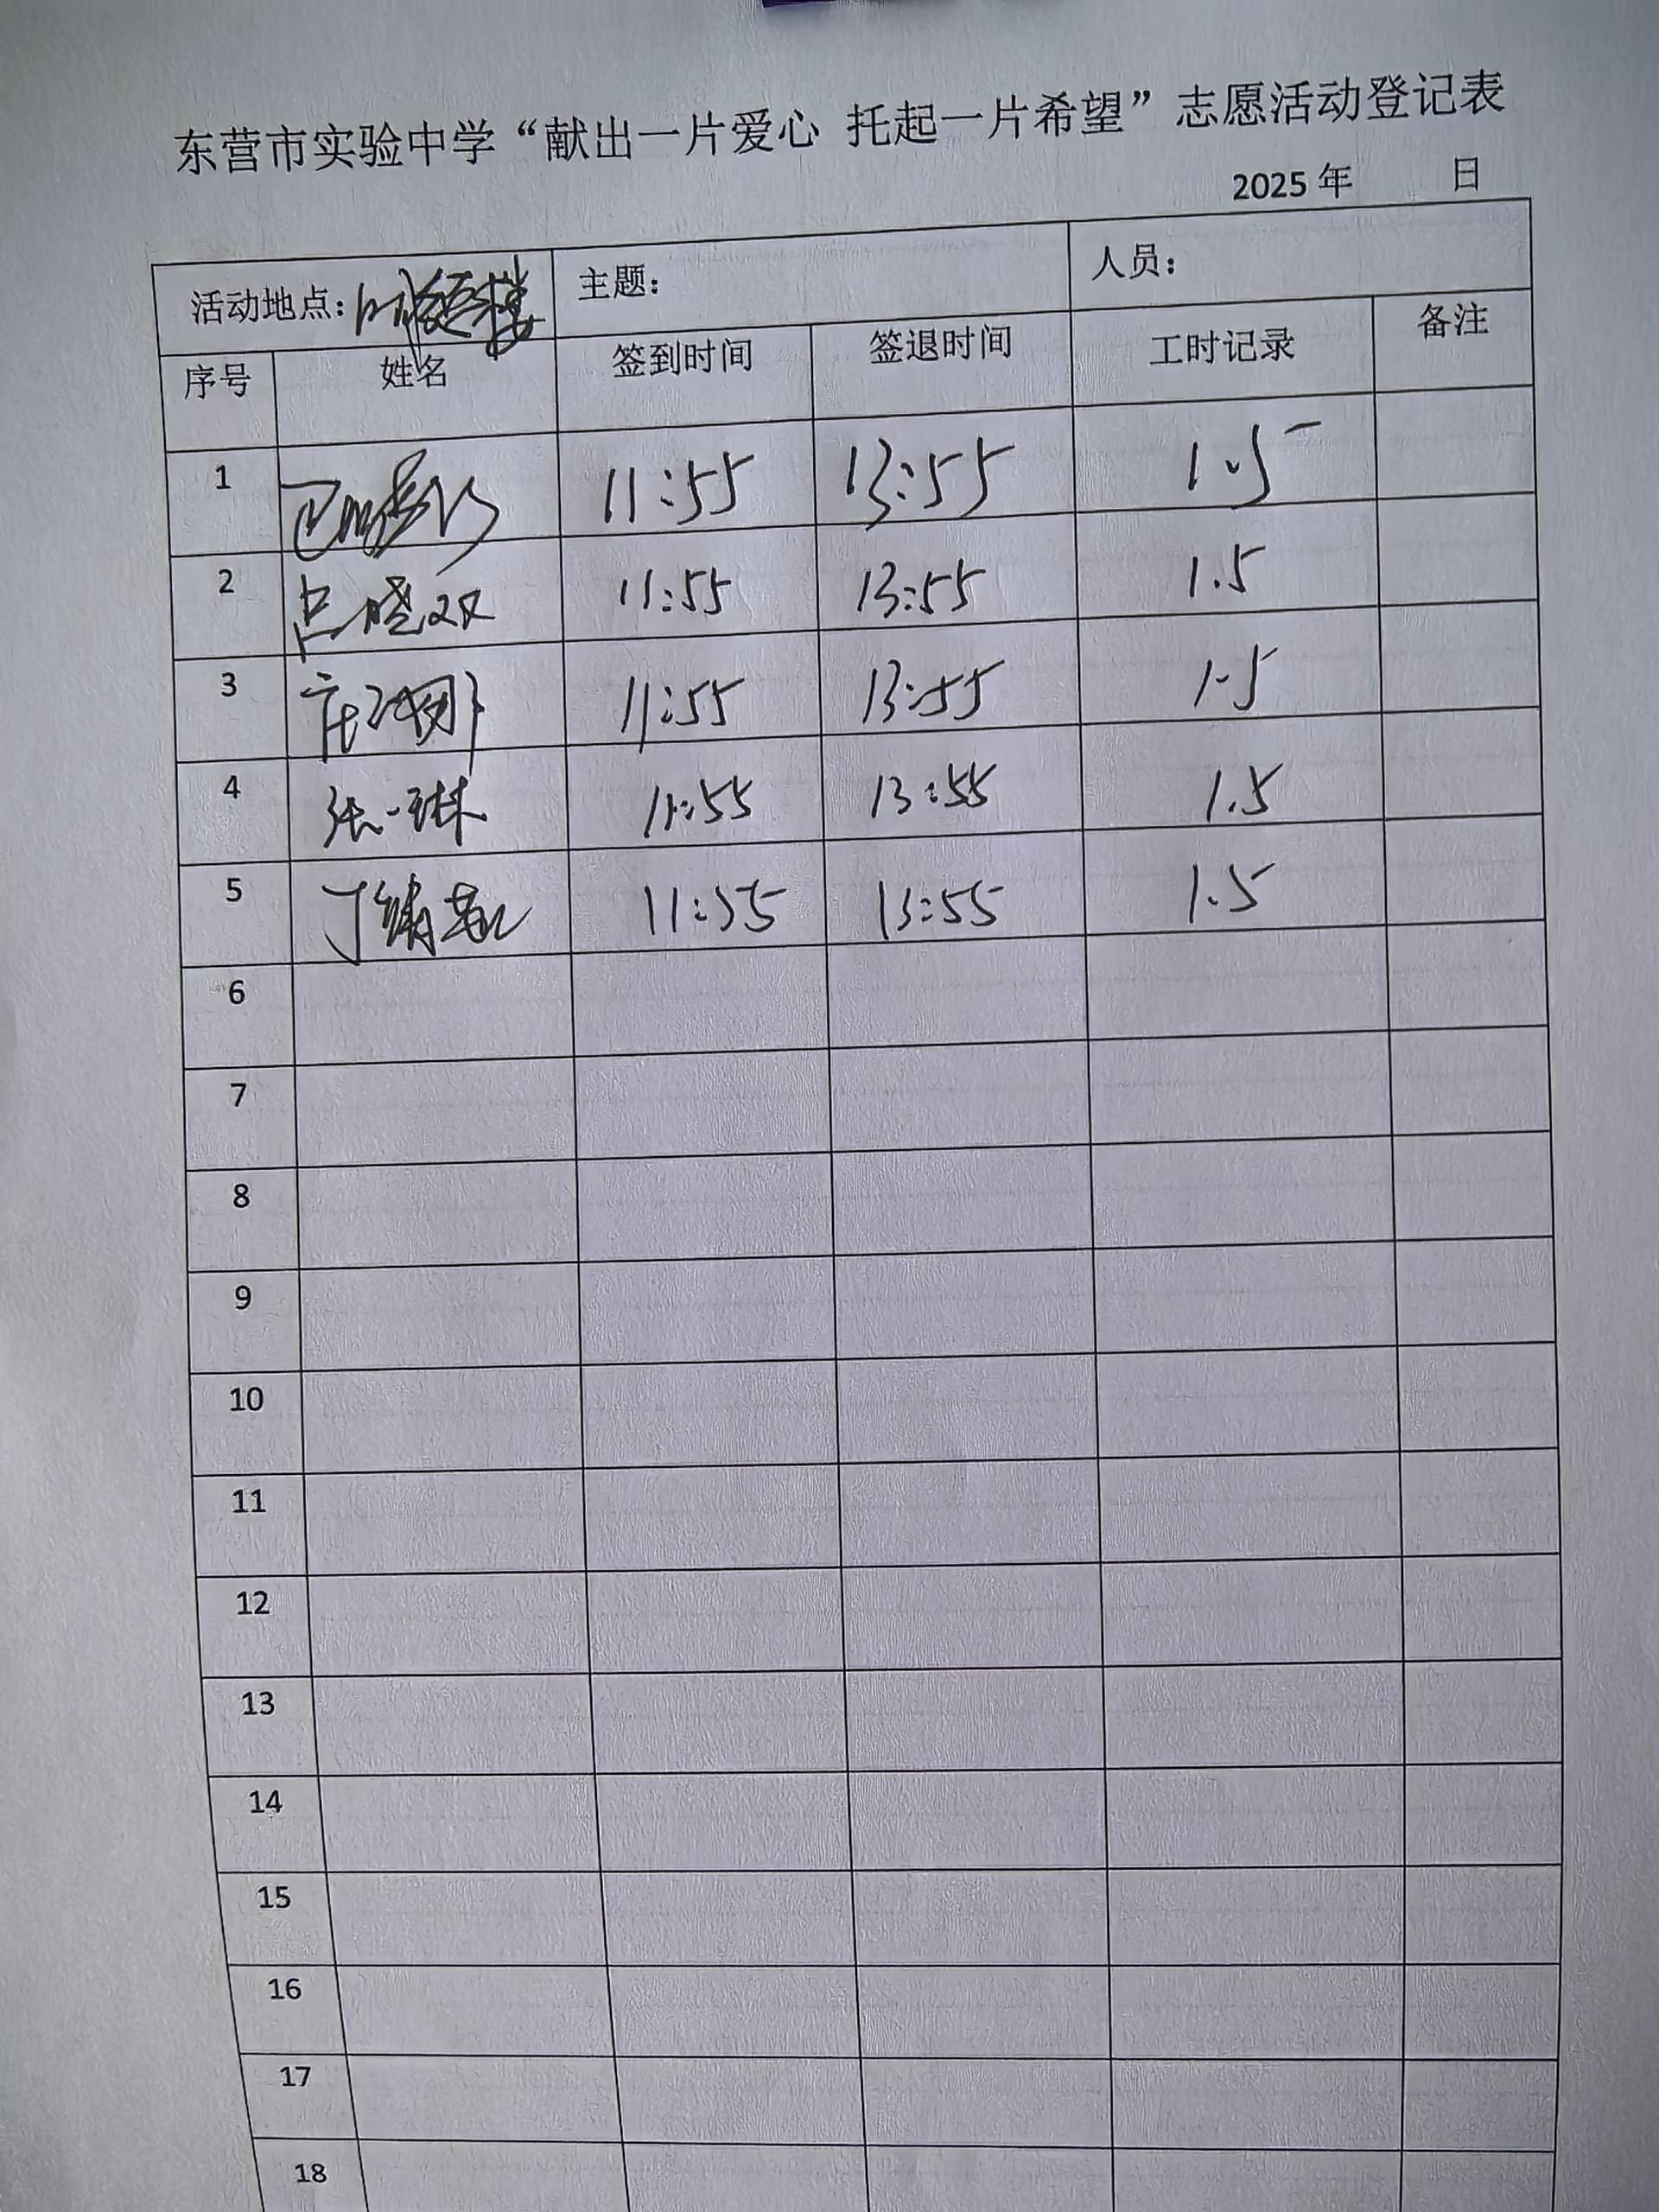 东营市实验中学“献出一片爱心 托起一片希望”志愿活动登记表
2025 年 日
活动地点: 楼 主题: 人员:
序号 姓名 签到时间 签退时间 工时记录 备注
1 11:55 13:55 1.5
2 吕晓双 11:55 13:55 1.5
3 11:55 13:55 1.5
4 张一琳 11:55 13:55 1.5
5 丁 11:55 13:55 1.5
6
7
8
9
10
11
12
13
14
15
16
17
18